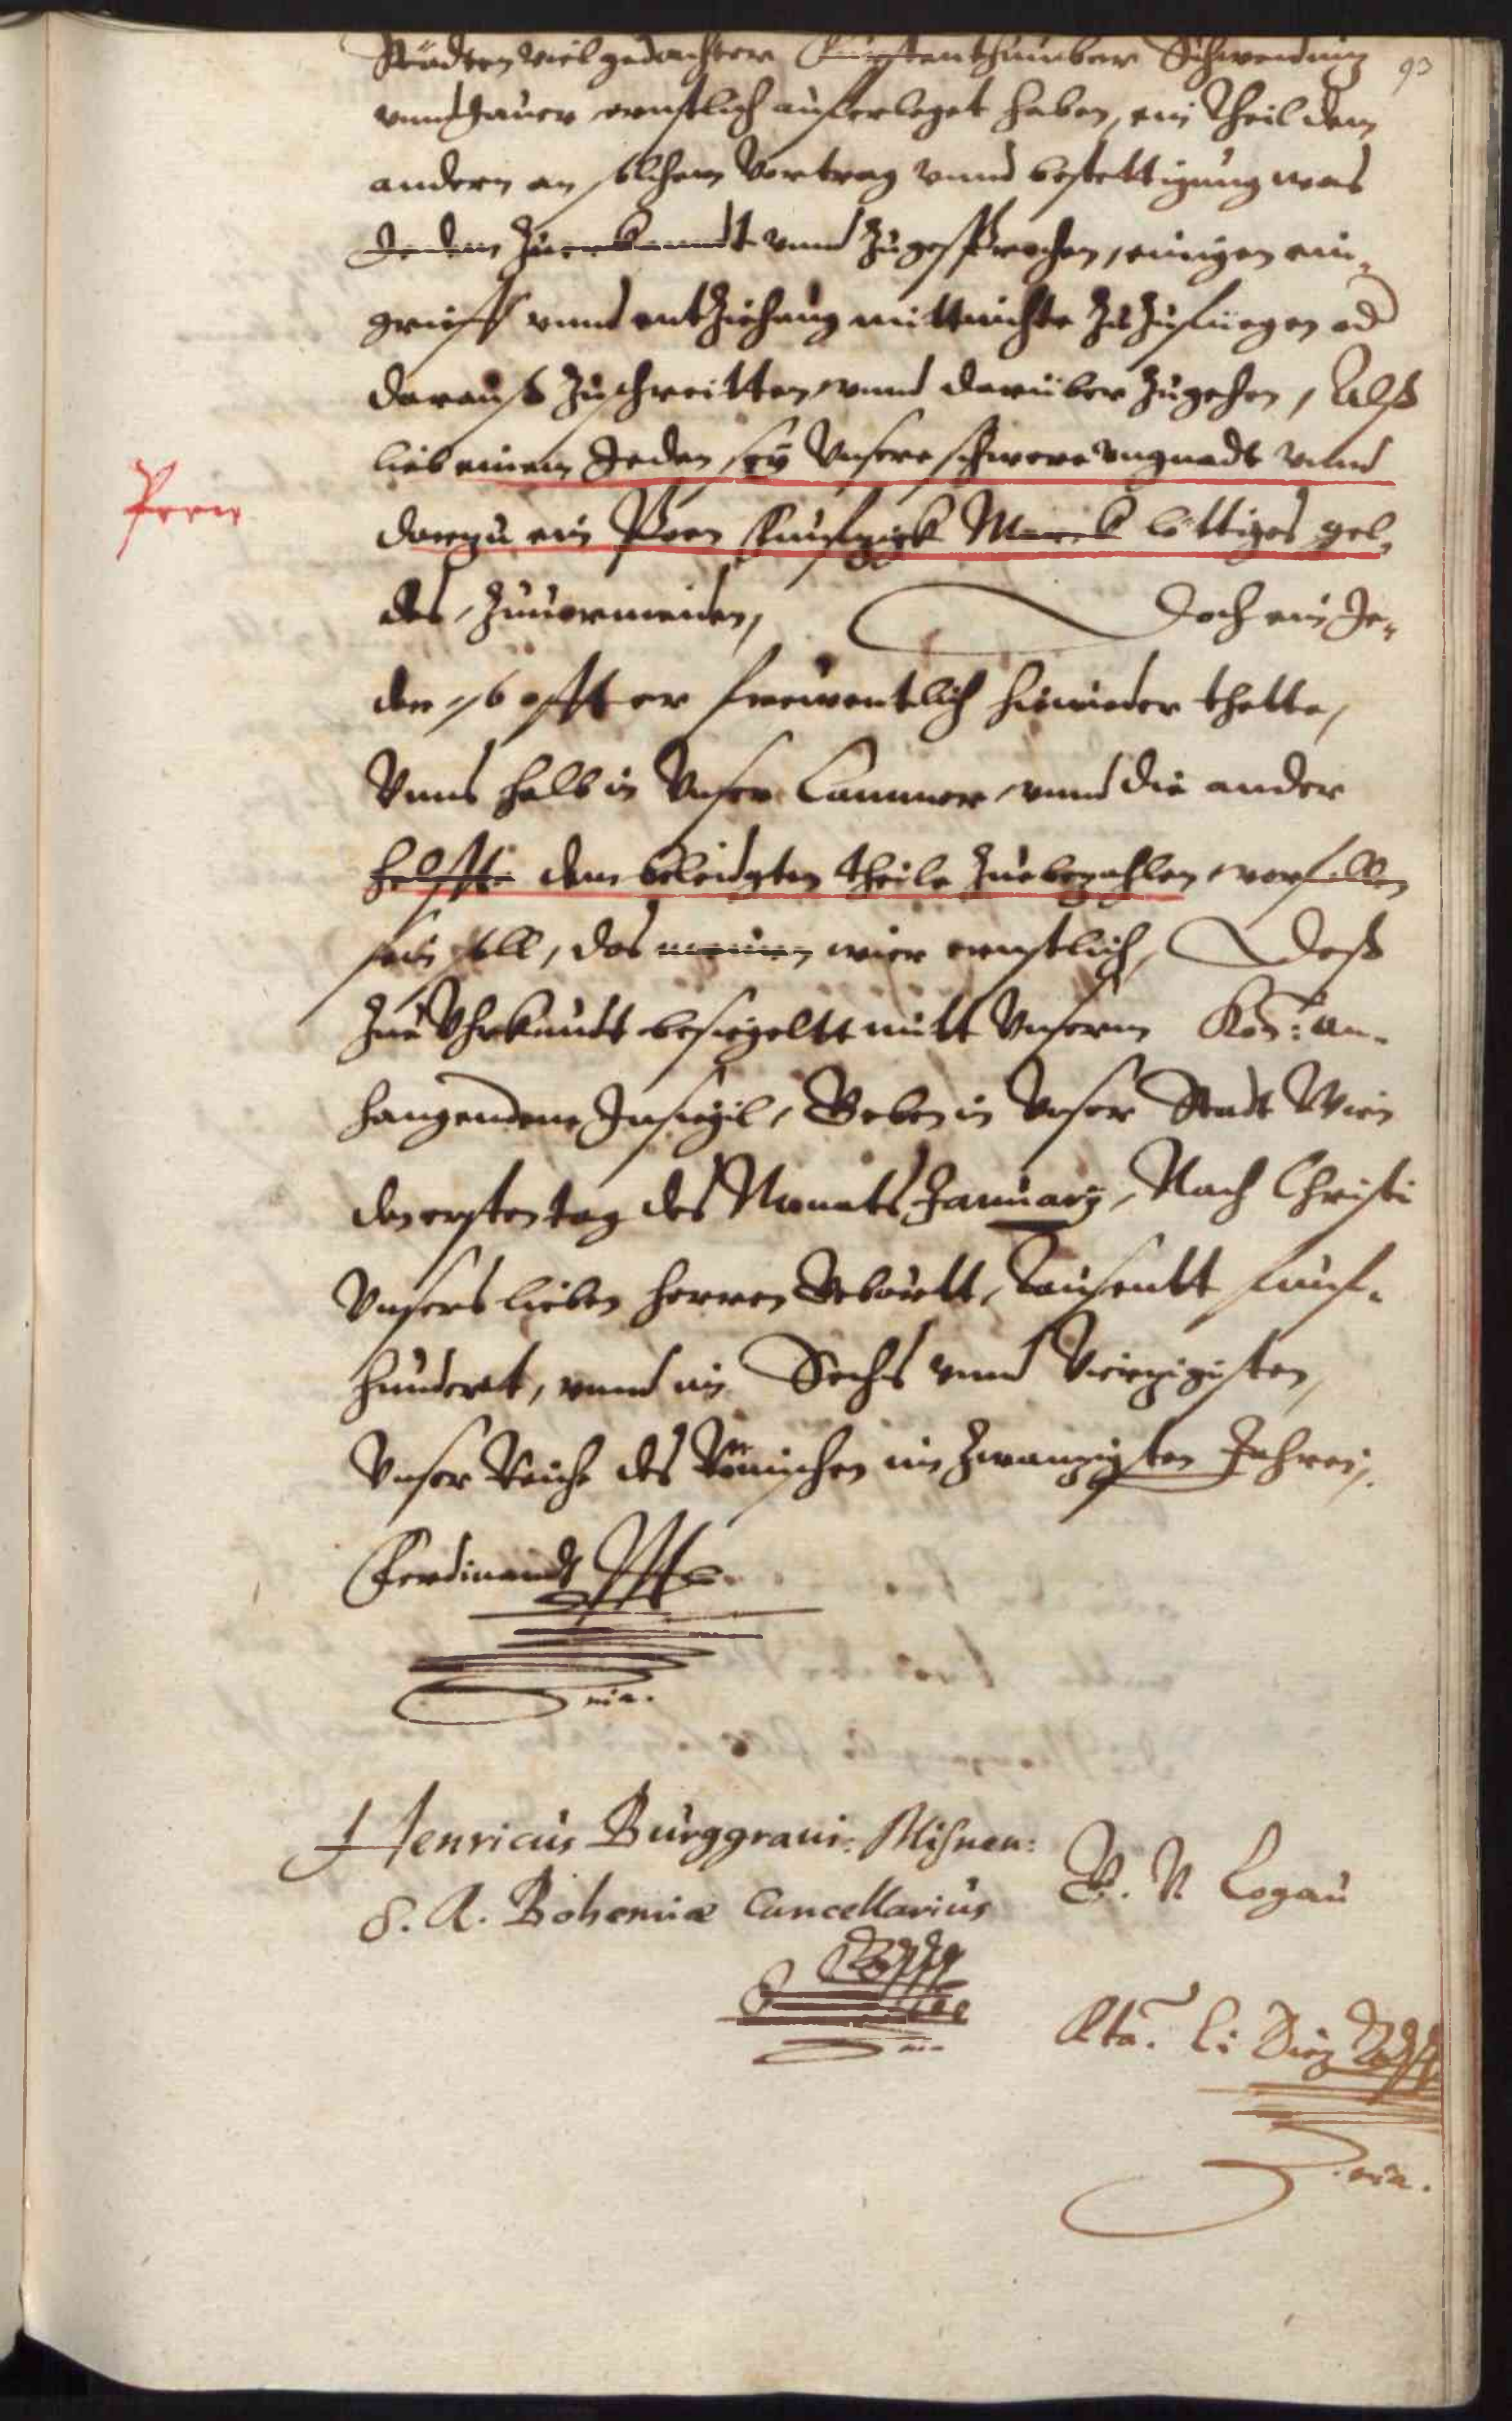 93
Städten viel gedachter Fürstenthumber Schweidnitz
vnnd Jauer ernstlich aufferleget haben, ein Theil dem
andern an solchem Vertrag vnnd bestettigung was
Jedem Zuerkandt vnnd Zugesprochen, einigen ein-
grieff vnnd entziehung mitt nichte Zuzufuegen od
darauß Zuschreitten, vnnd darüber Zugehen, Alß
lieb einem Jeden sey Vnsere schwere vngnadt vnnd
Poen
darzu ein Poen funfzigk Marck löttiges gel-
des, Zuuormeiden, Doch ein Je-
der so offt er freuentlich hirwieder thette,
Vnns halb in Vnser Cammer, vnnd die ander
helffte dem beleidigten theile Zuebezahlen, vorfallen
sein soll, das meinen wier ernstlich, Deß
Zue Vhrkundt besiegeltt mitt Vnserm Kön: an-
hangendem Insiegil, Geben in Vnser Stadt Wien
den ersten tag des Monats January, Nach Christi
Vnsers lieben herren Gebůrtt, Tausentt funf-
hundert, vnnd im Sechs vnnd Vierzigisten,
Vnser Reiche des Römischen im Zwanzigsten Jahren,
Ferdinandt
mia.
Henricus Burggraui: Misnen:
S. R. Bohemiæ Cancellarius
G. V. Logau
mia.